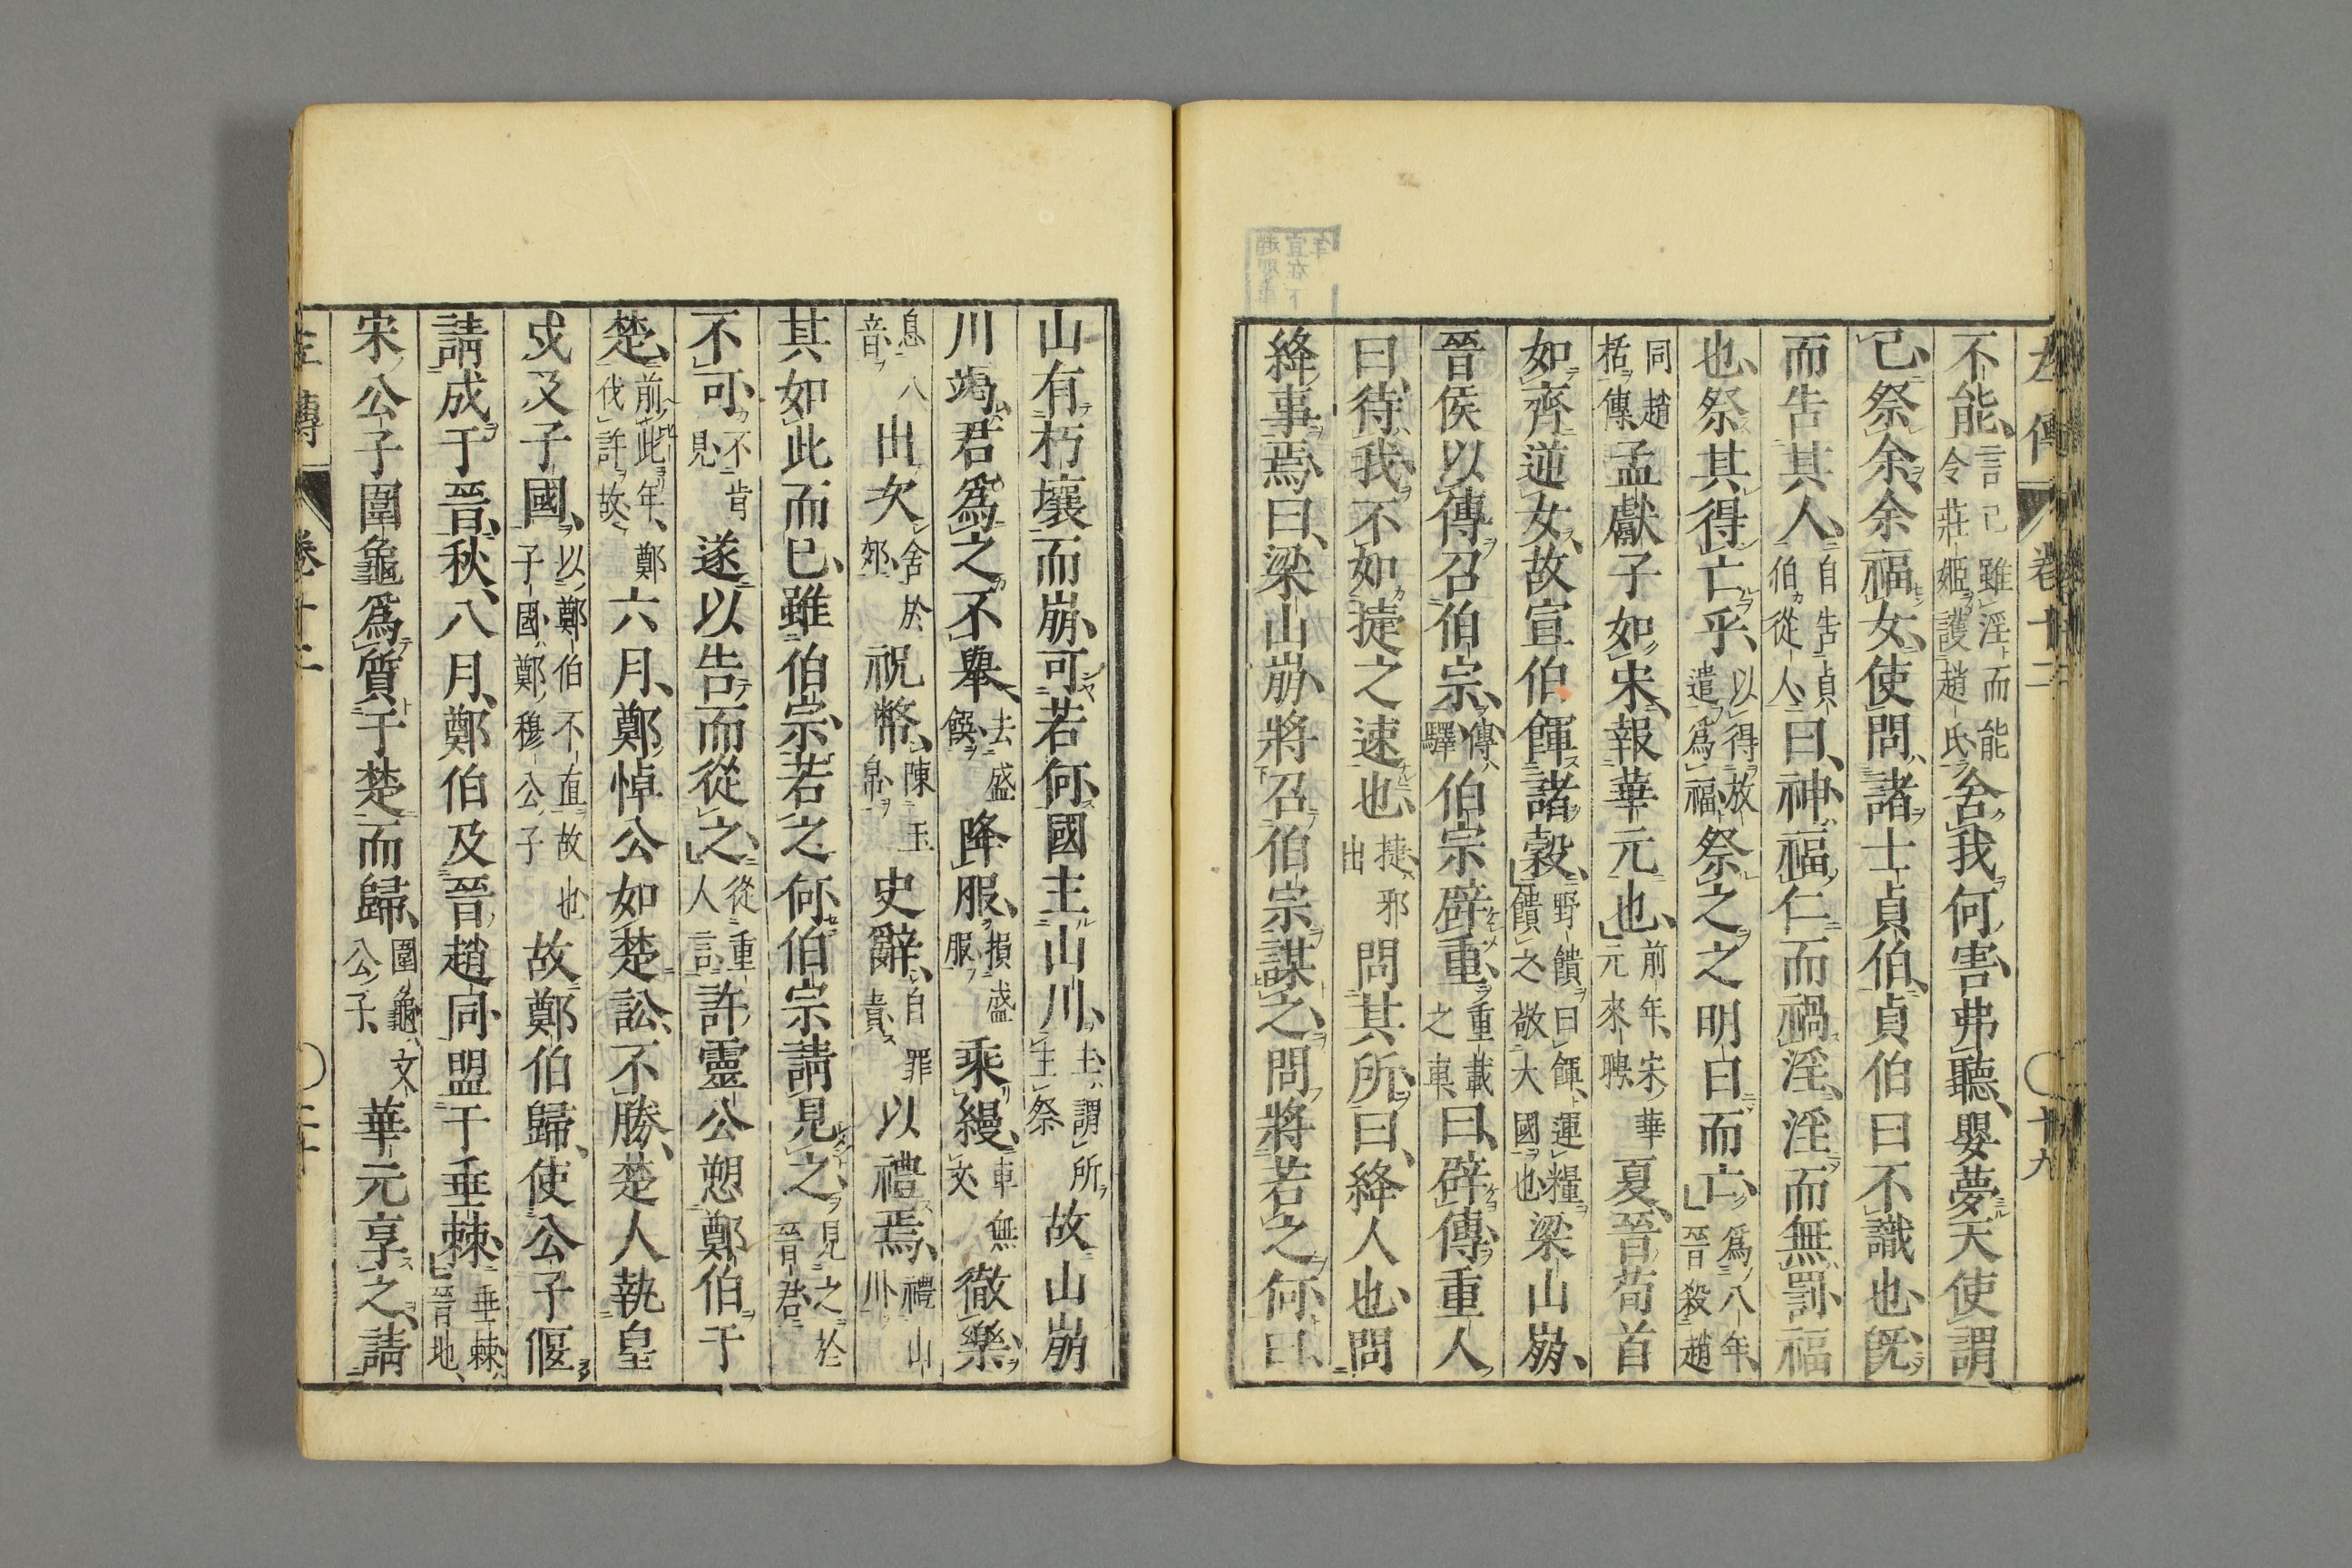 左傳 卷十二 ○十九
不能、言己雖淫而能令莊姬護趙氏舍我何害、弗聽、嬰夢天使謂
己、祭余、余福女、使問諸士貞伯、貞伯曰不識也、既
而告其人、自告貞伯從人曰、神福仁而禍淫、淫而無罰、福
也、祭其得亡乎、以得放遣爲福祭之之明日而亡、爲八年、晉殺趙
同趙括傳孟獻子如宋、報華元也、前年、宋華元來聘夏、晉荀首
如齊逆女、故宣伯餫諸穀、野饋曰餫、運糧饋之敬大國也梁山崩、
晉侯以傳召伯宗、傳驛伯宗辟重、重載之車曰、辟傳重人
曰、待我、不如捷之速也、捷、邪出問其所、曰、絳人也、問
絳事焉、曰、梁山崩、將召伯宗謀之、問將若之何、曰、
山有朽壤而崩、可若何、國主山川、主、謂所主祭故山崩
川竭、君爲之不舉、去盛饌降服、損盛服乘縵、車無文徹樂、
息八音出次、舍於郊祝幣、陳玉帛史辭、自罪責以禮焉、禮山川
其如此而已、雖伯宗、若之何、伯宗請見之、見之於晉君
不可、不肯見遂以告而從之、從重人言許靈公愬鄭伯于
楚、前此年、鄭伐許故六月、鄭悼公如楚訟、不勝、楚人執皇
戌及子國、以鄭伯不直故也子國、鄭穆公子故鄭伯歸、使公子偃
請成于晉、秋、八月、鄭伯及晉趙同盟于垂棘、垂棘、晉地、
宋公子圍龜爲質于楚而歸、圍龜、文公子、華元享之、請
左傳 卷十二 ○二十